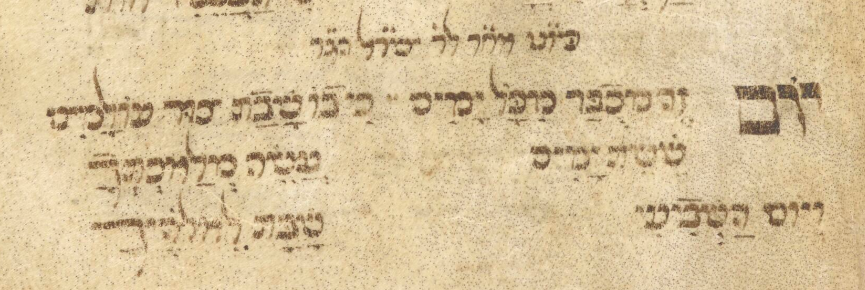 פיוט אחר לר' ישראל
יוֹם זֶה מְכֻבָּד מִכָּל יָמִים · כִּי בוֹ שָׁבַת צוּר עוֹלָמִים
שֵׁשֶׁת יָמִים עֲשֵׂה מְלַאכְתֶּךָ
וְיוֹם הַשְּׁבִיעִי שַׁבָּת לֵאלֹהֶיךָ